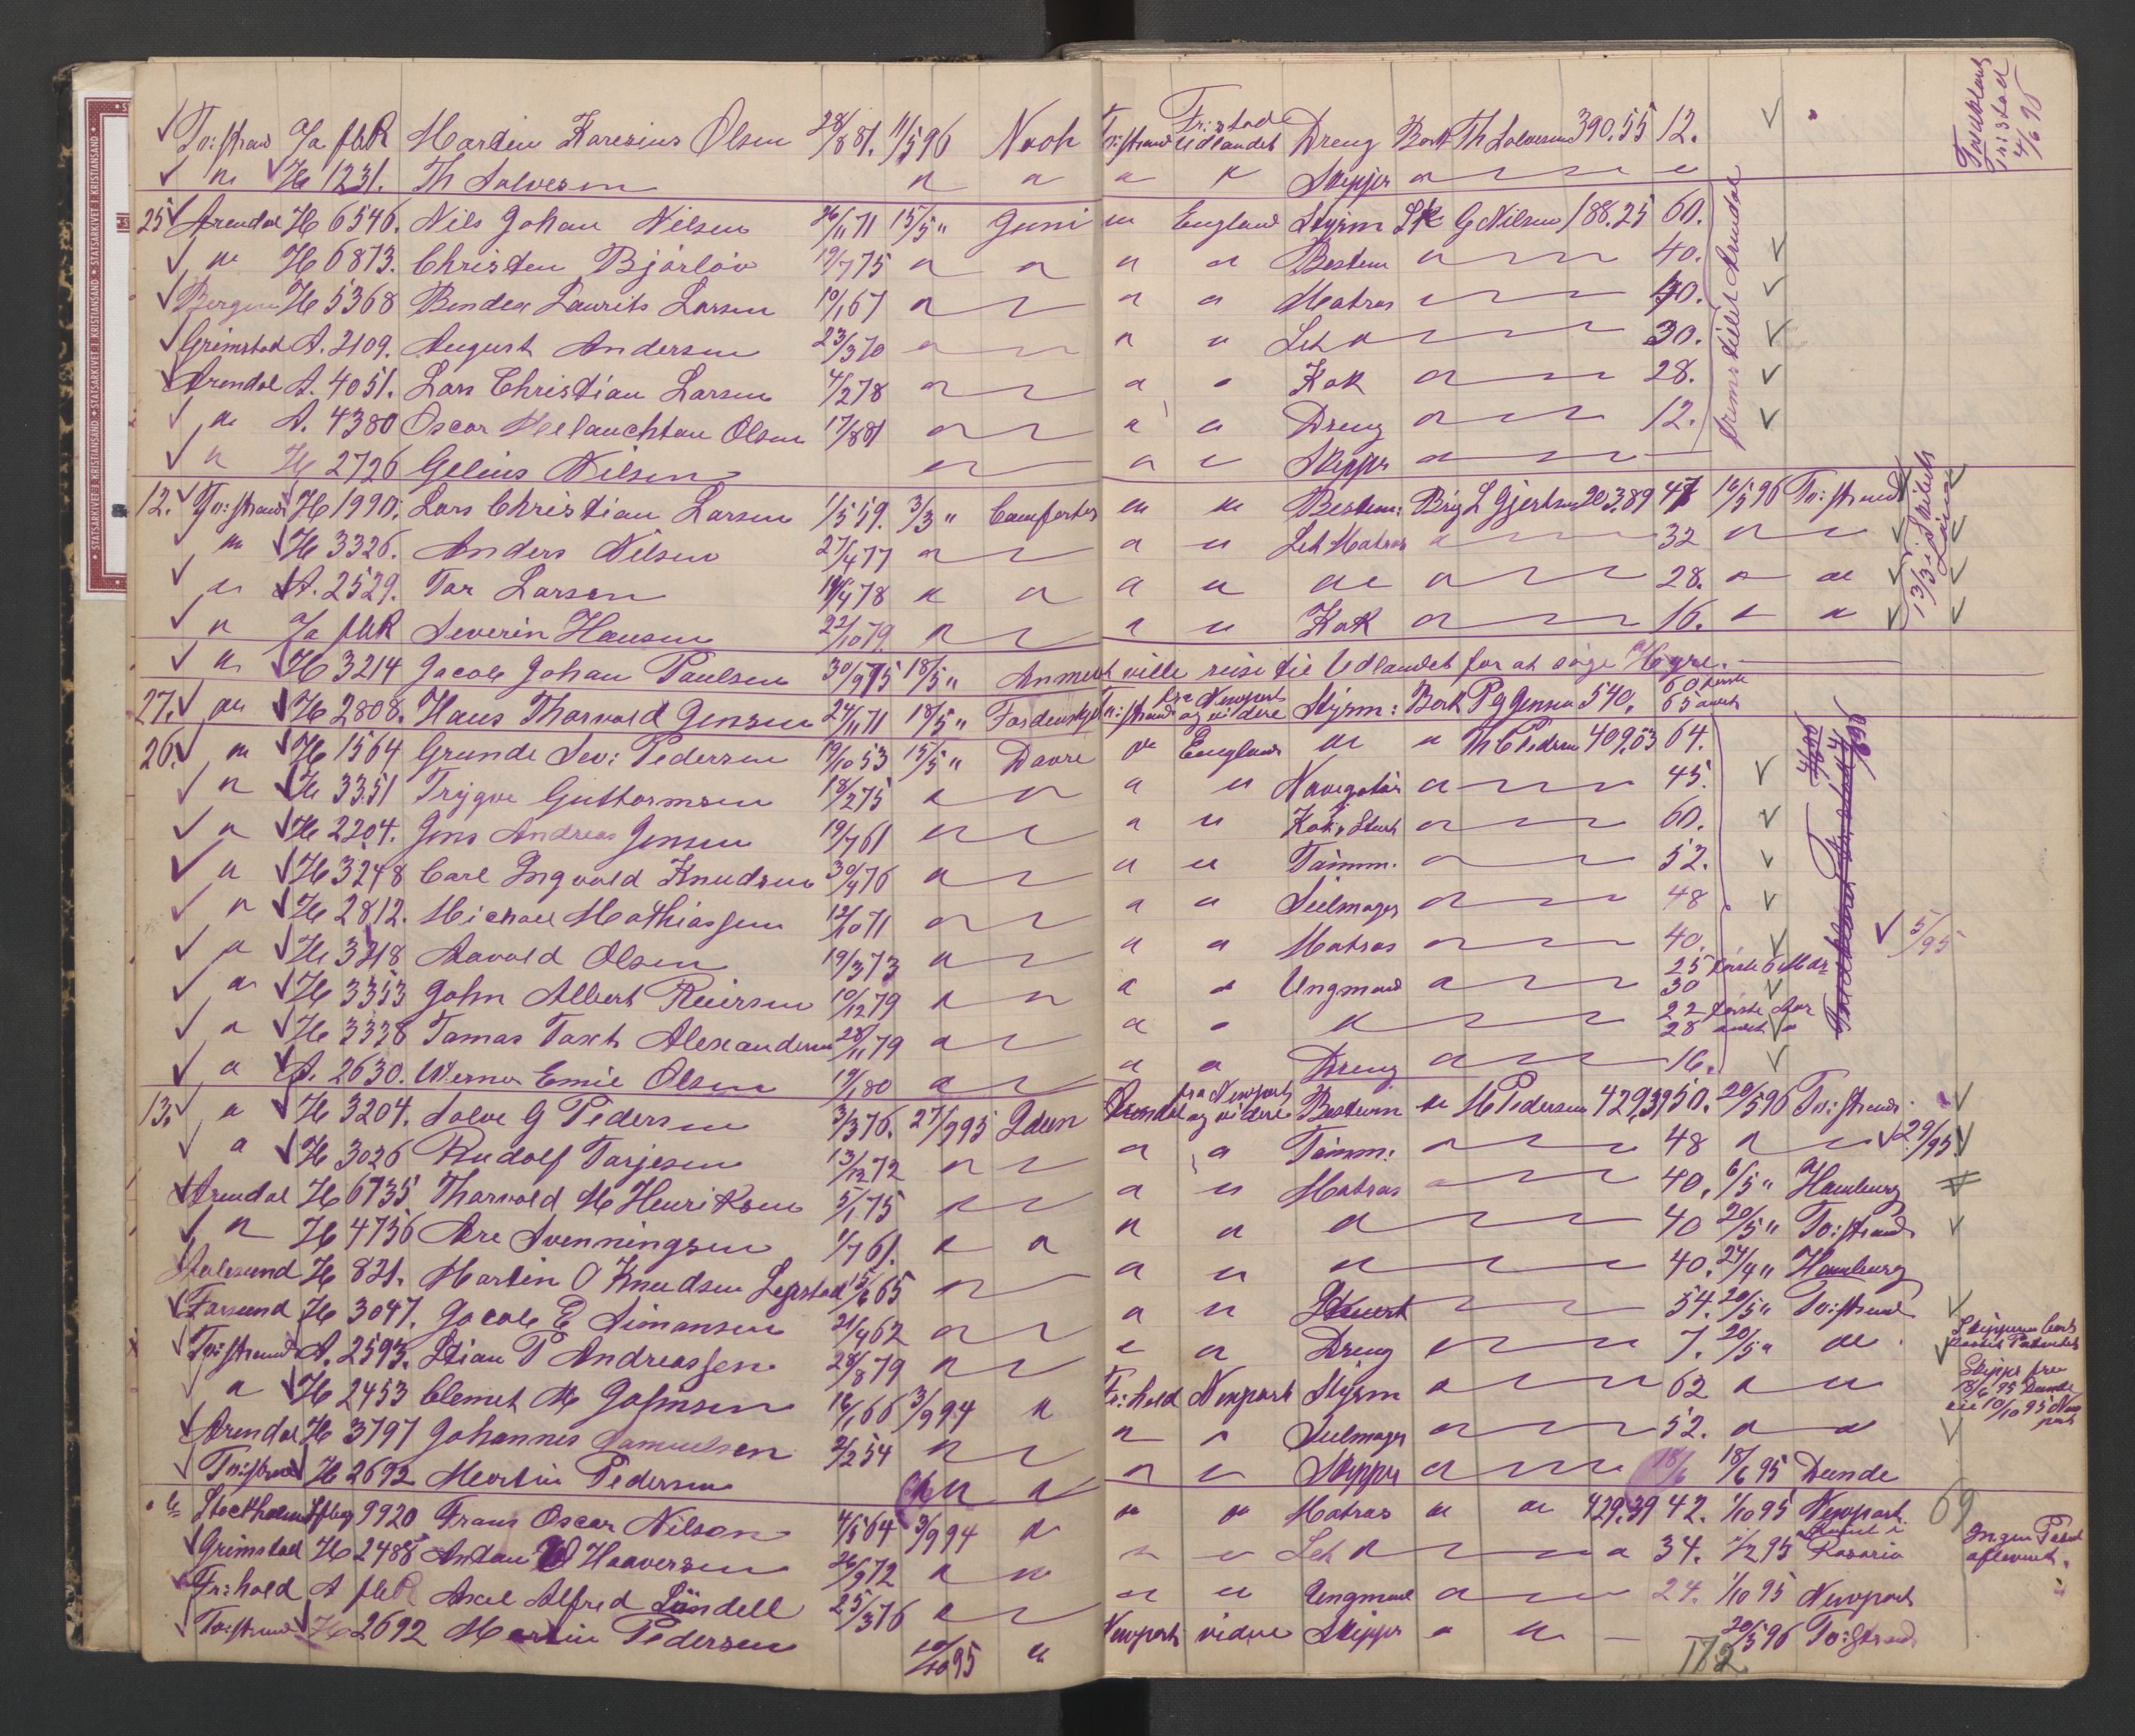 To:strand Ja fhR Martin Karesius Olsen 28/8 81. 11/5 96 Noah To:strand Fr:stad Udlandet Dreng Bark Th Salvesen 390.55 12.
" H 1231. Th Salvesen " " " " Skipper " "
Fra Udlandet Fr:stad 4/6 96
25 Arendal H 6546. Nils Johan Nilsen 26/11 71 15/5 " Juni " England Styrm Sk G Nilsen 188.25 60.
" H 6873. Christen Bjørløv 19/7 75 " " " " Bestem " 40.
Bergen H 5368 Bendix Laurits Larsen 10/1 67 " " " Matros " 40.
Grimstad A. 2109. August Andersen 23/3 70 " " " Let " 30.
Arendal A. 4051. Lars Christian Larsen 4/2 78 " " " Kok " 28.
" A. 4380 Oscar Melanchtan Olsen 17/8 81 " " " Dreng " 12.
" H 2726 Gelius Nilsen " " " Skipper "
12. To:strand H 1990. Lars Christian Larsen 1/5 59. 3/3 " Comforter " " Bestem: Brig L Gjertsen 203.89 47 16/5 96 To:strand
" H 3326. Anders Nilsen 27/4 77 " " " Let Matros " 32 " "
" A. 2529. Tor Larsen 14/4 78 " " " " " " 28. " "
" Ja fhR Severin Hansen 22/10 79. " " " Kok " 16. " "
" H 3214 Jacob Johan Paulsen 30/9 75 18/5 " Anmerk ville reise til Udlandet for at søge Hyre.
27. " H 2808. Hans Thorvald Jensen 24/11 71 18/5 " To:strand fra Newport og videre Styrm: Bark P G Jensen 540. 60 65
26. " H 1564 Grunde Sev: Pedersen 19/10 53 15/5 " Dovre " England " " Th C Pedersen 409,53 64.
" H 3351 Trygve Guttormsen 18/2 75 " " " " Navigatør " 45.
" H 2204. Jens Andreas Jensen 19/7 61 " " " Kok & Stuert " 60.
" H 3248 Carl Ingvald Knudsen 30/4 76 " " " Tømm. " 52.
" H 2812. Michael Mathiassen 12/10 71 " " " Seilmager " 48
" H 3218 Aavald Olsen 19/3 73 " " " Matros " 40. 5/95
" H 3353 John Albert Reiersen 10/12 79 " " " " Ungmand " 25 første 6 Mdr 30
" H 3338 Tomas Taxt Alexandersen 28/11 79 " " " " 22 første Aar 28 andet "
" A. 2630. Werner Emil Olsen 19/1 80 " " " Dreng " 16.
13. " H 3204. Salve G Pedersen 3/3 76. 27/9 95 Iduen Arendal fra Newport og videre Bestem " M Pedersen 429,39 50. 20/5 96 To:strand.
" H 3026 Rudolf Tarjesen 13/12 72 " " " Tømm: " 48 " " 29/95
Arendal H 6735 Thorvald M Henriksen 5/1 75 " " " Matros " 40, 6/5 " Hamburg
" H 4736 Are Svenningsen 1/7 61. " " " " " 40 20/5 " To:strand
Aalesund H 821. Martin O Knudsen 15/6 65 " " " " 40. 24/4 " Hamburg
Farsund H 3047. Jacob E Simonsen 21/4 62 " " " Stuert " 54. 20/5 " To:strand
To:strand A. 2593. Stian T Andreassen 28/8 79 " " " Dreng " 7. 20/5 " "
" H 2453 Clemet M Johnsen 16/1 66 3/9 94 " Fr:hald Newport Styrm " 62 " "
Skipper fra 18/6 95 Dundee til 10/10 95 Newport
Arendal H 3797 Johannes Samuelsen 2/2 54 " " " Seilmager " 52. " "
To:strand H 2692 Martin Pedersen " " " " Skipper " 18/6 18/6 95 Dunde
Stockholm 9920 Frans Oscar Nilson 4/5 64 3/9 94 " " " Matros " " 429.39 42. 1/10 95 Newport. 69
Grimstad H 2488 Anton W Haaversen 26/9 72 " " " Let " " 34. 1/2 95 Rømt i Rosario Ingen
Fr:hald A fhR Axel Alfred Lündell 25/3 76 " " " Ungmand " 24. 1/10 95 Newport
To:strand H 2692 Martin Pedersen 10/10 95 " Newport videre Skipper " " 20/5 96 To:strand
172